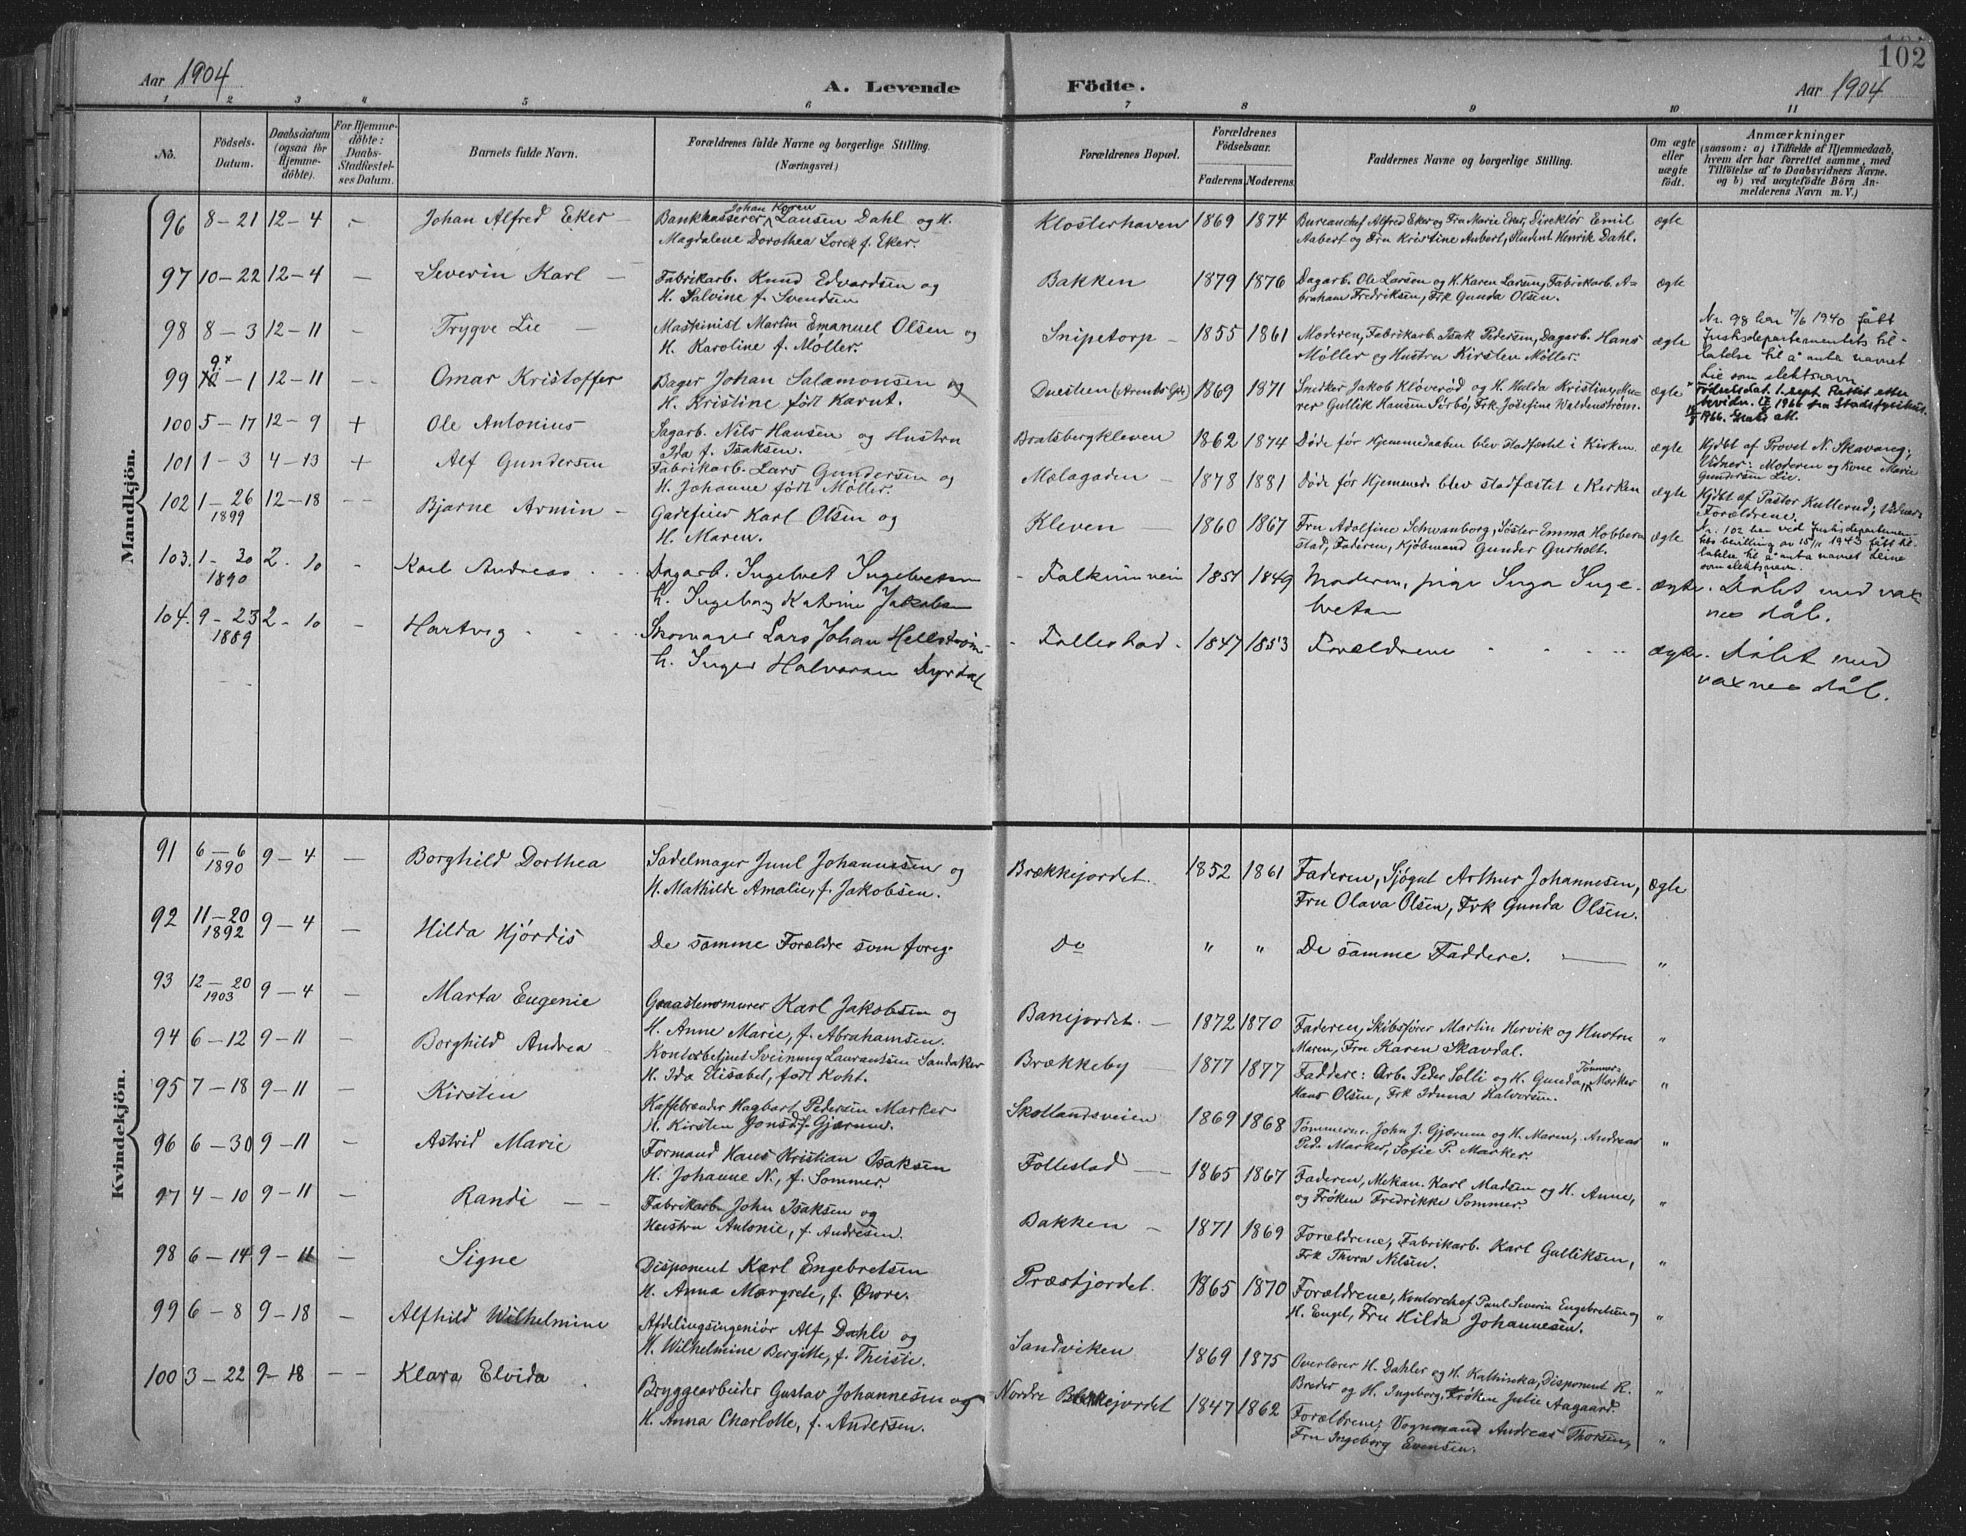 102
Aar 1904
A. Levende
Födte.
Aar 1904
1 2 3 4 5 6 7 8 9 10 11
No.
Födsels-
Datum.
Daabsdatum
(ogsaa for
Hjemme-
döbte).
For Hjemme-
döbte:
Daabs-
Stadfestel-
ses Datum.
Barnets fulde Navn.
Forældrenes fulde Navne og borgerlige Stilling.
(Næringsvei)
Forældrenes Bopæl.
Forældrenes
Födselsaar.
Faderens Moderens
Faddernes Navne og borgerlige Stilling.
Om ægte
eller
uægte
födt.
Anmærkninger
(saasom: a) i Tilfælde af Hjemmedaab,
hvem der har forrettet samme, med
Tilföielse af to Daabsvidners Navne,
og b) ved uægtefödte Börn An-
melderens Navn m. V.)
Mandkjön.
96 8-21 12-4 - Johan Alfred Eker - Bankkasserer Johan Koren Lausen Dahl og H.
Magdalene Dorothea Lorck f. Eker.
Klosterhaven 1869 1874 Bureauchef Alfred Eker og Fru Marie Eker, Direktör Emil
Aubert og Fru Kristine Aubert, Student Henrik Dahl.
ægte
97 10-22 12-4 - Severin Karl - Fabrikarb. Knud Edvardsen og
H. Salvine f. Svendsen
Bakken 1879 1876 Dagarb. Ole Larsen og H. Karen Larsen, Fabrikarb. A-
braham Fredriksen, Frk Gunda Olsen.
ægte
98 8-3 12-11 - Trygve Lie - Maskinist Martin Emanuel Olsen og
H. Karoline f. Møller.
Snipetorp - 1855 1861 Moderen, Fabrikarb. Isak Pedersen, Dagarb. Hans
Møller og Hustru Kirsten Møller.
ægte
Nr. 98 har 7/6 1940 fått
Justisdepartementets til-
latelse til å anta navnet
Lie som slektsnavn
99 9x-1 12-11 - Omar Kristoffer Bager Johan Salamonsen og
H. Kristine født Karut.
Duestien (Arents Gd.) 1869 1871 Snedker Jakob Kløverød og H. Hulda Kristine, Mu-
rer Gullik Hansen Sørbö, Frk Josefine Waldenström.
ægte
Födselsdat. 1. sept. Rettet etter
1966 fra Stadsfysikus
1966.
100 5-17 12-9 + Ole Antonius Sagarb. Nils Hansen og Hustru
Ida f. Isaksen.
Bratsbergkleven 1862 1874 Døde før Hjemmedaaben blev stadfæstet i Kirken.
ægte
Hjdbt af Provst N. Skavang;
Vidner: Moderen og Kone Marie
Gundersen Lie.
101 1-3 4-13 + Alf Gundersen Fabrikarb. Lars Gundersen og
H. Johanne født Møller.
Malagaden - 1878 1881 Døde før Hjemmed. blev stadfæstet i Kirken
ægte
Hjdbt af Pastor Kullerud; Vidner:
Forældrene.
102 1-26 1899 12-18 -- Bjarne Armin - Gadefeier Karl Olsen og
H. Maren.
Kleven - 1860 1867 Fru Adolfine Schwanborg, Søster Emma Hobber-
stad, Faderen, Kjøbmand Gunder Gurholt.
ægte
Nr. 102 har ved Justisdepartemen-
tets bevilling av 15/11 1943 fått til-
latelse til å anta navnet Leine
som slektsnavn.
103. 1-30 1890 2.-10 - Karl Andreas . . Dagarb. Ingebret Ingebretsen
h. Ingeborg Katrine Jakobsen
- Falkumveien 1851 1849 Moderen, pige Inga Inge-
bretsen
ægte. Døbt med vax-
nes dåb.
104. 9-23 1889 2.-10 - Hartvig . . . Skomager Lars Johan Hellström
h. Inger Halvorsen Dyrdal
- Follestad. 1847 1853 Forældrene . . .
ægte. Døbt med
vaxnes dåb.
Kvindekjön.
91 6-6 1890 9-4 - Borghild Dorthea Sadelmager Juul Johannesen og
H. Mathilde Amalie, f. Jakobsen.
Brækkejordet. 1852 1861 Faderen, Sjøgut Arthur Johannesen,
Fru Olava Olsen, Frk Gunda Olsen.
ægte
92 11-20 1892 9-4 - Hilda Hjørdis De samme Forældre som foreg. Do " " De samme Faddere. - "
93 12-20 1903 9-4 - Marta Eugenie Graastensmurer Karl Jakobsen og
H. Anne Marie, f. Abrahamsen.
Banejordet. - 1872 1870 Faderen, Skibsfører Martin Hervik og Hustru
Maren, Fru Karen Skavdal.
"
94 6-12 9-11 - Borghild Andrea Kontorbetjent Sveinung Lauransen Sandaker
H. Ida Elisabet, født Koht.
Brækkeby - 1877 1877 Faddere: Arb. Peder Solli og H. Gunda, Tømmerm.
Hans Olsen, Frk Idunna Halvorsen.
"
95 7-18 9-11 - Kirsten Kaffebrænder Hagbart Pedersen Marker
H. Kirsten Jonsd. f. Gjærum.
Skotlandsveien 1869 1868 Tømmerm. John J. Gjærum og H. Maren, Andreas
Ped. Marker, Sofie P. Marker.
"
96 6-30 9-11 - Astrid Marie Formand Hans Kristian Isaksen
H. Johanne N., f. Sommer.
Follestad - 1865 1867 Faderen, Mekan. Karl Madsen og H. Anne,
og Frøken Fredrikke Sommer.
"
97 4-10 9-11 - Randi - - Fabrikarb. John Isaksen og
Hustru Antonie, f. Andresen.
Bakken - 1871 1869 Forældrene, Fabrikarb. Karl Gulliksen,
Frk Thora Nilsen.
"
98 6-14 9-11 - Signe Disponent Karl Engebretsen
H. Anna Margrete, f. Øwre.
Præstjordet. 1865 1870 Forældrene, Kontorchef Paul Severin Engebretsen og
H. Engel, Fru Hilda Johannesen.
"
99 6-8 9-18 - Alfhild Wilhelmine Afdelingsingeniör Alf Dahle og
H. Wilhelmine Bergitte, f. Theiste.
Sandviken 1869 1875 Overlærer H. Dahler og H. Kathinka, Disponent R.
Breder og H. Ingeborg, Frøken Julie Aagaard.
"
100 3-22 9-18 -- Klara Elvida Bryggearbeider Gustav Johannesen og
H. Anna Charlotte, f. Andersen.
Nordre Brækkejordet 1847 1862 Forældrene, Vognmand Andreas Thorsen,
Fru Ingeborg Evensen.
"